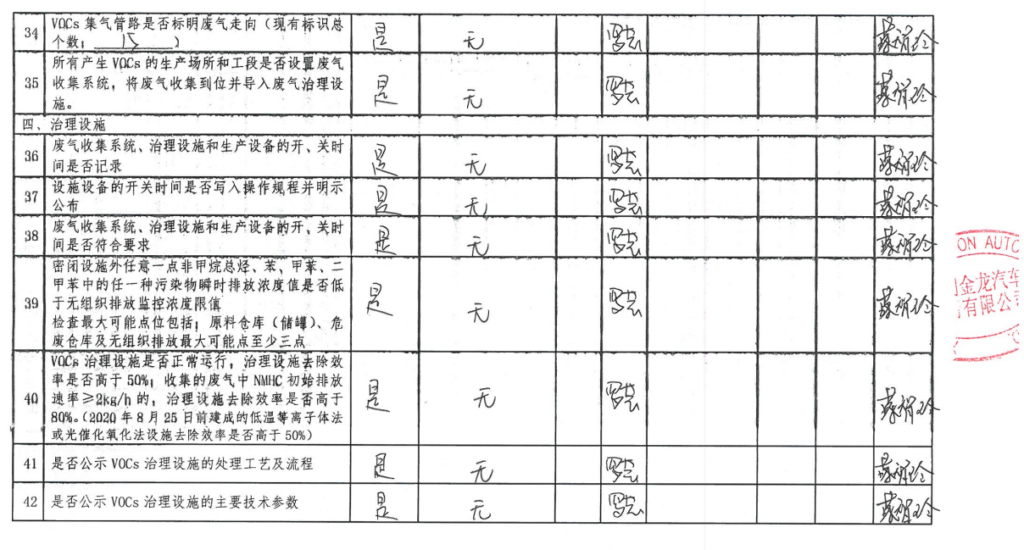 34 VOCs 集气管路是否标明废气走向（现有标识总
个数：15） 是 无
35 所有产生 VOCs 的生产场所和工段是否设置废气
收集系统，将废气收集到位并导入废气治理设
施。 是 无
四、治理设施
36 废气收集系统、治理设施和生产设备的开、关时
间是否记录 是 无
37 设施设备的开关时间是否写入操作规程并明示
公布 是 无
38 废气收集系统、治理设施和生产设备的开、关时
间是否符合要求 是 无
39 密闭设施外任意一点非甲烷总烃、苯、甲苯、二
甲苯中的任一种污染物瞬时排放浓度值是否低
于无组织排放监控浓度限值
检查最大可能点位包括：原料仓库（储罐）、危
废仓库及无组织排放最大可能点至少三点 是 无
40 VOCs 治理设施是否正常运行，治理设施去除效
率是否高于 50%；收集的废气中 NMHC 初始排放
速率≥2kg/h 的，治理设施去除效率是否高于
80%。（2020 年 8 月 25 日前建成的低温等离子体法
或光催化氧化法设施去除效率是否高于 50%） 是 无
41 是否公示 VOCs 治理设施的处理工艺及流程 是 无
42 是否公示 VOCs 治理设施的主要技术参数 是 无
ON AUTO
金龙汽车
有限公司